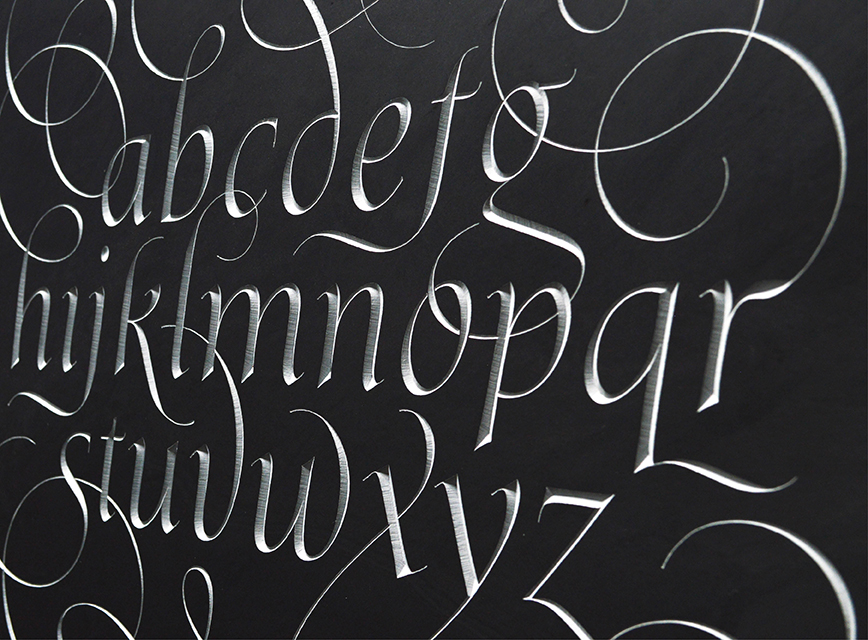 abcdefg
hijklmnopqr
stuvwxyz